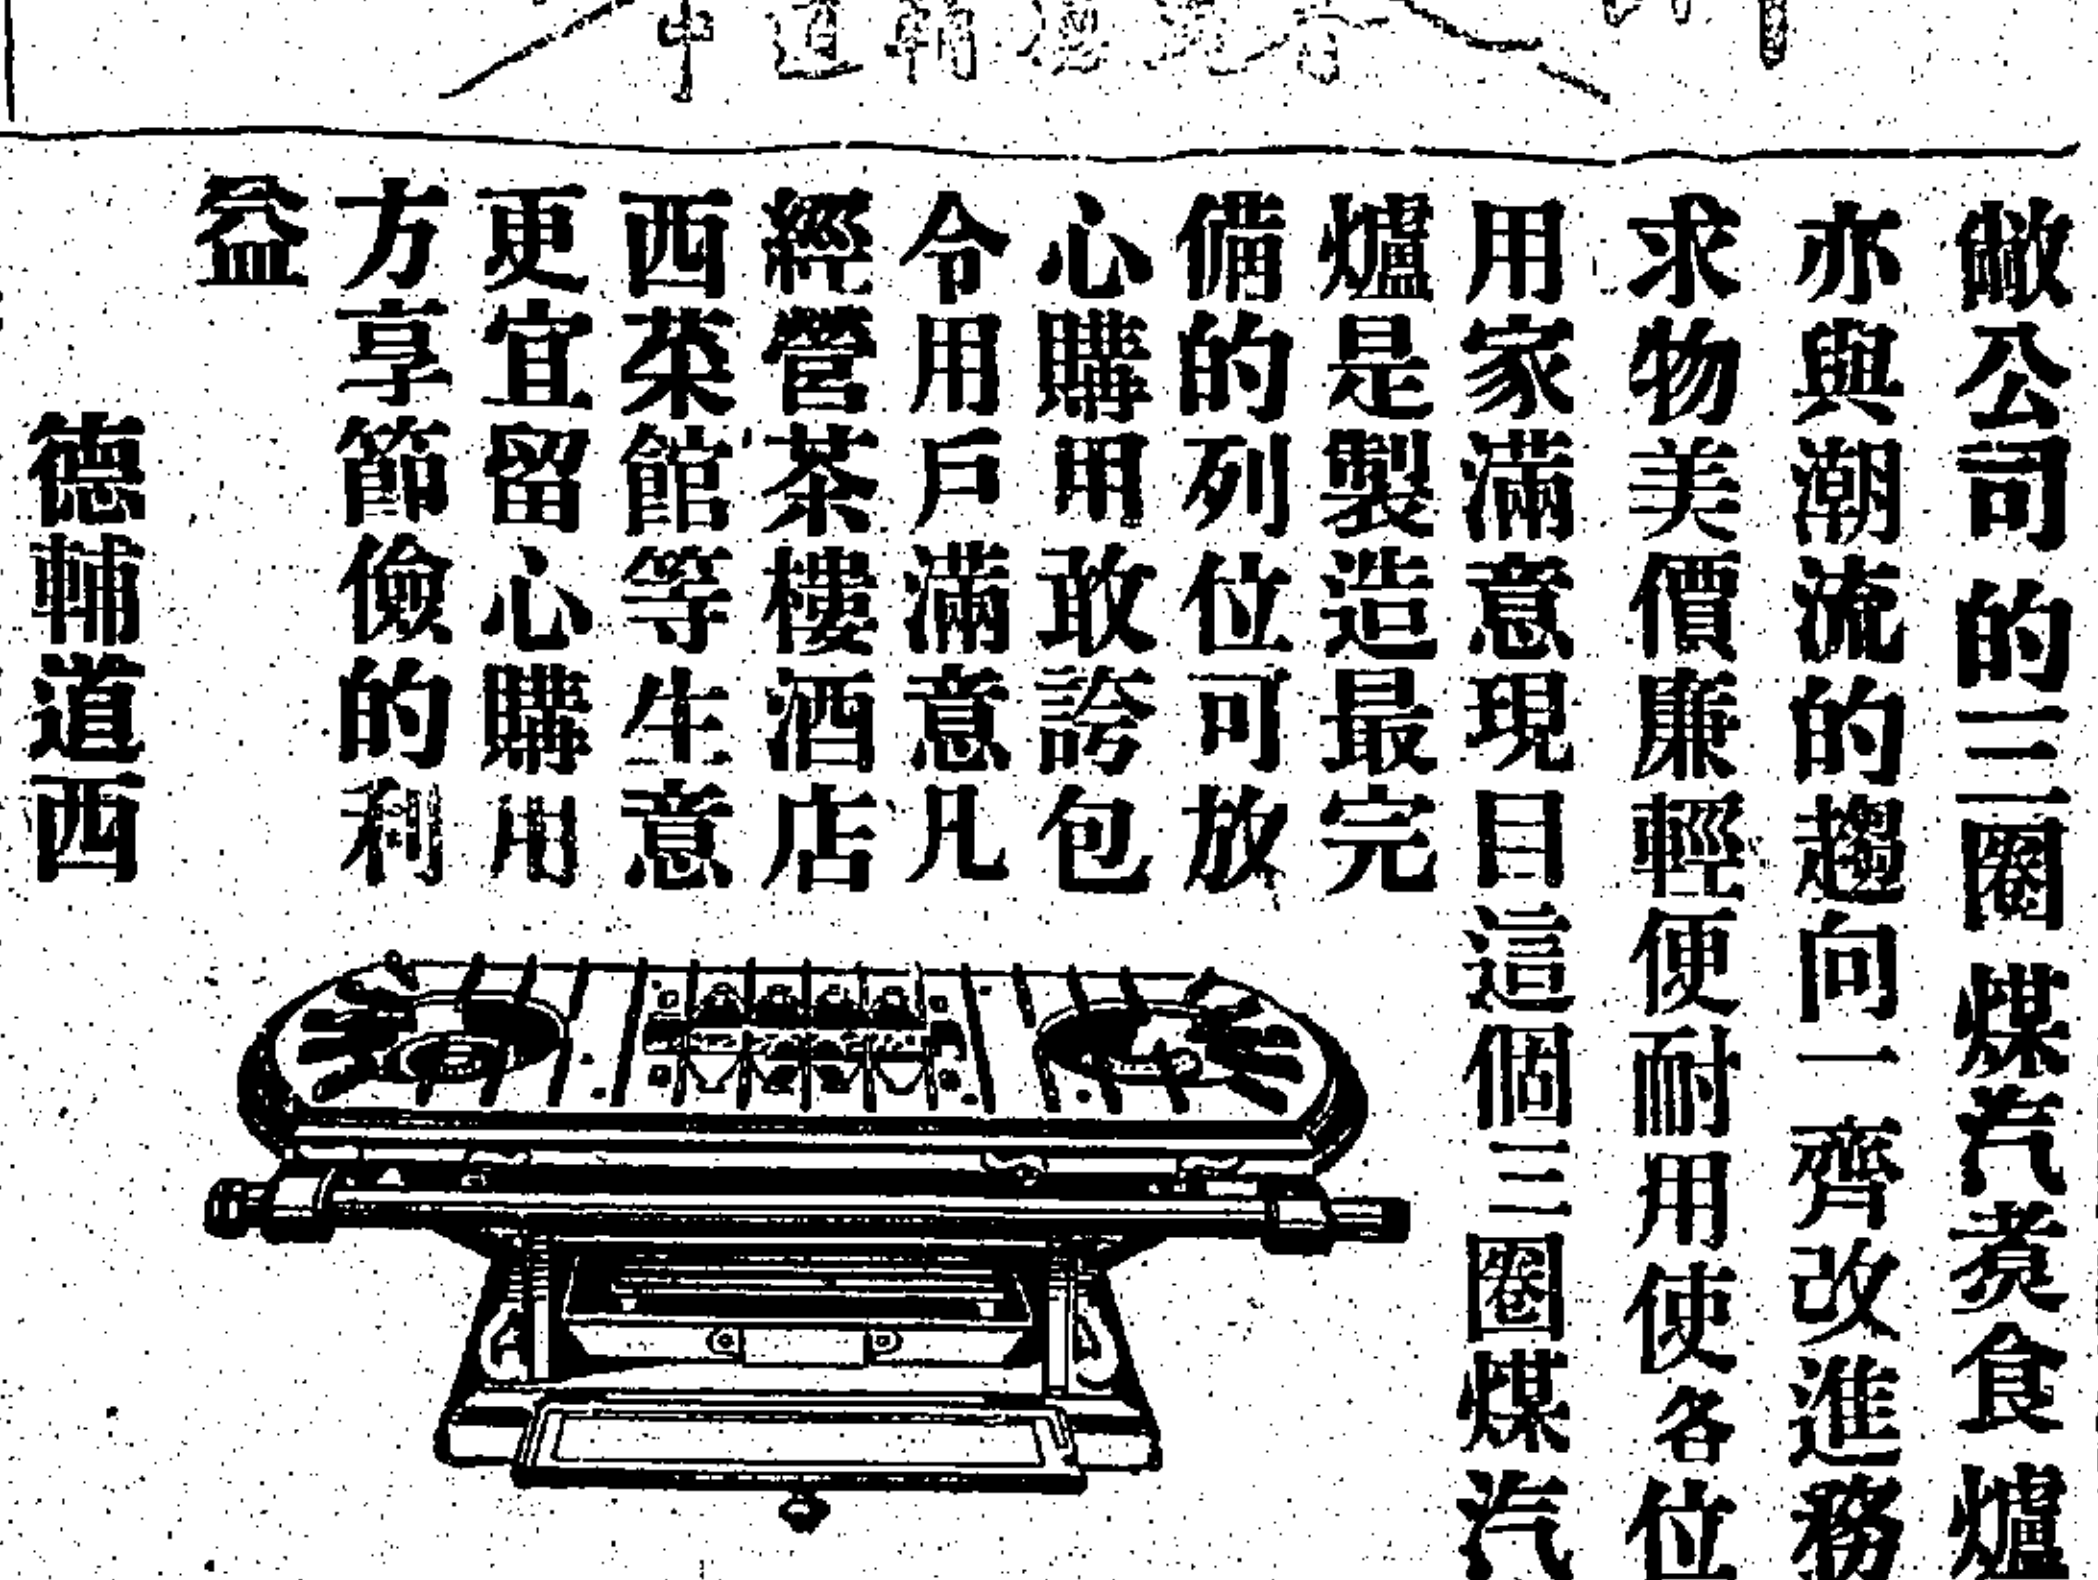 敝公司的三圈煤汽煮食爐
亦與潮流的趨向一齊改進務
求物美價廉輕便耐用使各位
用家滿意現目這個三圈煤汽
爐是製造最完
備的列位可放
心購用敢誇包
令用戶滿意凡
經營茶樓酒店
西菜館等生意
更宜留心購用
方享節儉的利
益
德輔道西